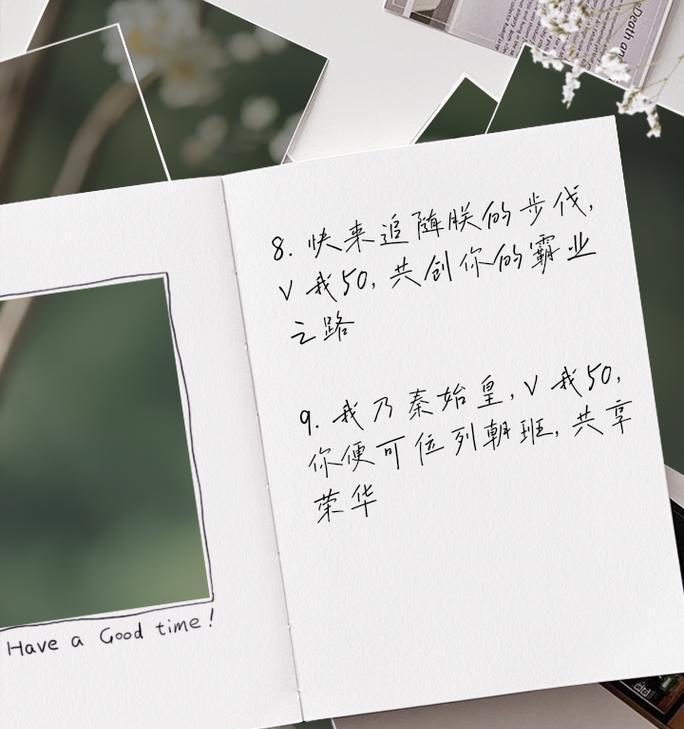 Death an
8. 快来追随朕的步伐,
V 我50, 共创你的霸业
之路
9. 我乃秦始皇, V 我50,
你便可位列朝班, 共享
荣华
Have a Good time!